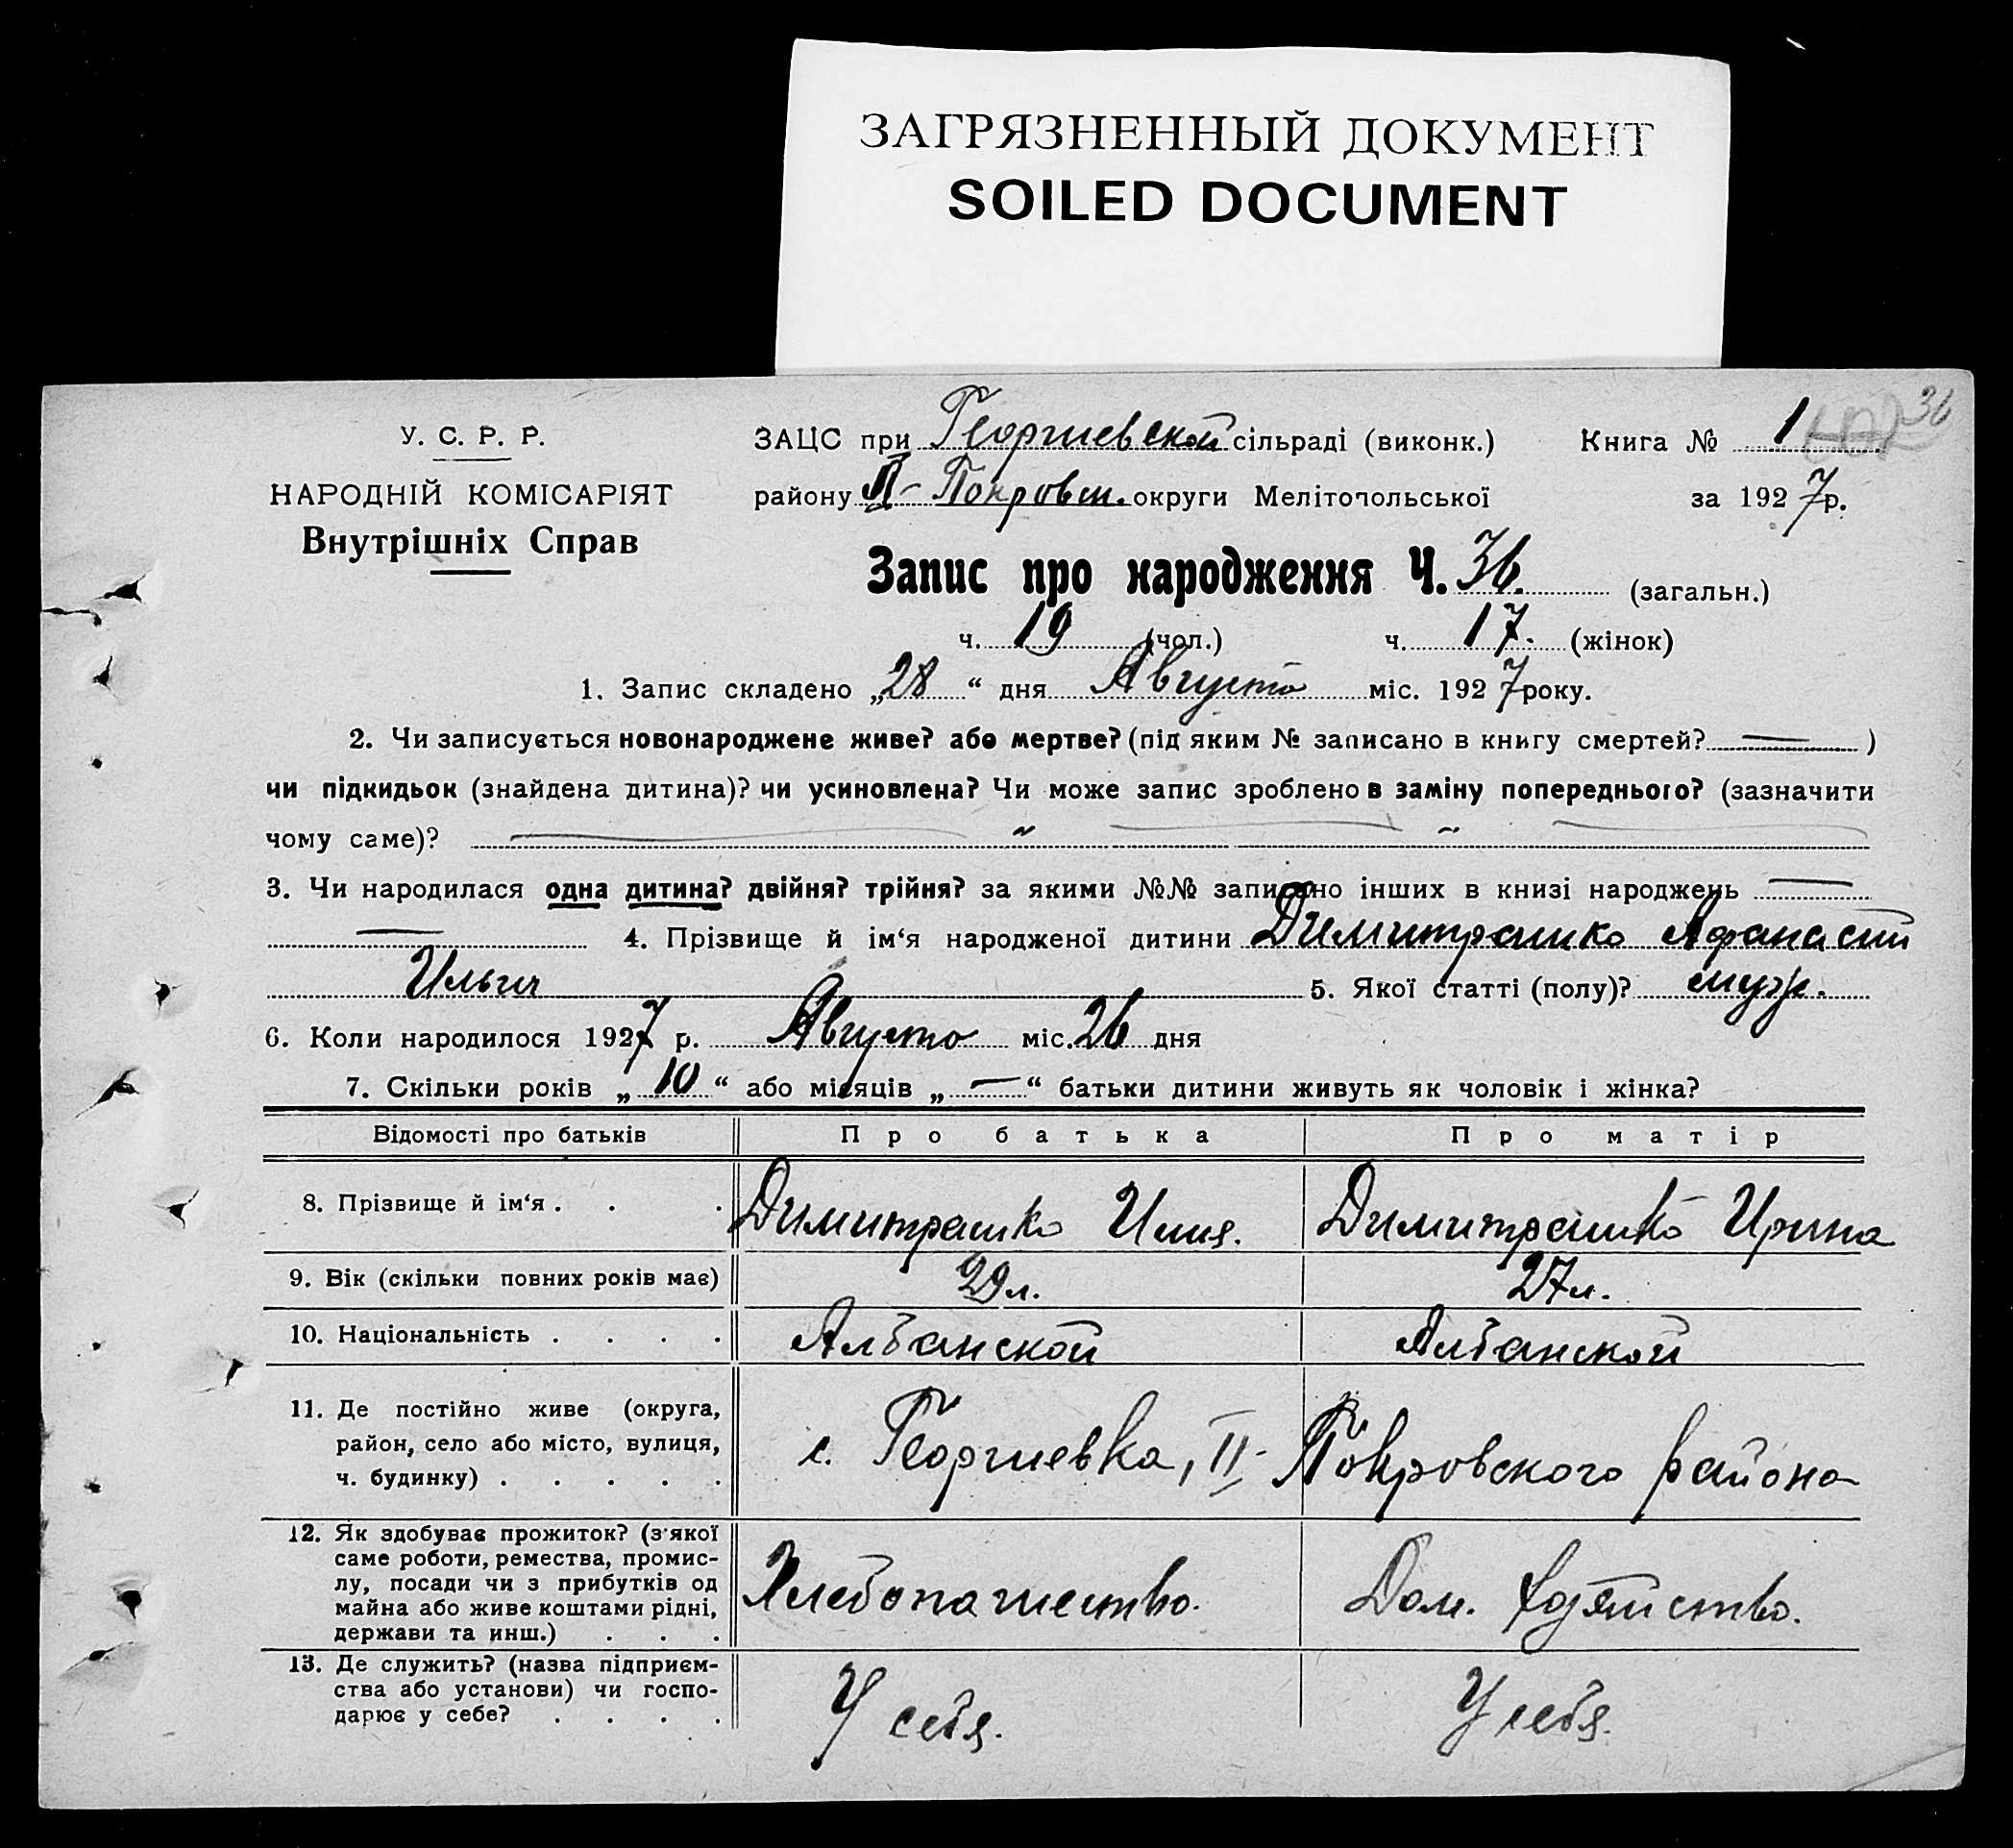 ЗАГРЯЗНЕННЫЙ ДОКУМЕНТ
SOILED DOCUMENT
36
У. С. Р. Р.
НАРОДНІЙ КОМІСАРІЯТ
Внутрішніх Справ
ЗАЦС при Георгиевской сільраді (виконк.) Книга № 1
району II-Покровск. округи Мелітопольської за 1927 р.
Запис про народження Ч. 36. (загальн.)
ч. 19 (чол.) ч. 17. (жінок)
1. Запис складено „28“ дня Августа міс. 1927 року.
2. Чи записується новонароджене живе? або мертве? (під яким № записано в книгу смертей? — )
чи підкидьок (знайдена дитина)? чи усиновлена? Чи може запис зроблено в заміну попереднього? (зазначити
чому саме)? — " — " —
3. Чи народилася одна дитина? двійня? трійня? за якими №№ записано інших в книзі народжень —
— 4. Прізвище й ім‘я народженої дитини Димитрашко Афанасий
Ильич 5. Якої статті (полу)? муж.
6. Коли народилося 1927 р. Августа міс. 26 дня
7. Скільки років „10“ або місяців „—“ батьки дитини живуть як чоловік і жінка?
Відомості про батьків Про батька Про матір
8. Прізвище й ім‘я . . . Димитрашко Илия. Димитрашко Ирина
9. Вік (скільки повних років має) 29 л. 27 л.
10. Національність . . . . Албанской Албанской
11. Де постійно живе (округа,
район, село або місто, вулиця,
ч. будинку) . . . . . с. Георгиевка, II-Покровского района
12. Як здобуває прожиток? (з'якої
саме роботи, ремества, промис-
лу, посади чи з прибутків од
майна або живе коштами рідні,
держави та инш.) . . . Хлебопашество. Дом. хозяйство.
13. Де служить? (назва підприєм-
ства або установи) чи госпо-
дарює у себе? . . . . У себя. У себя.